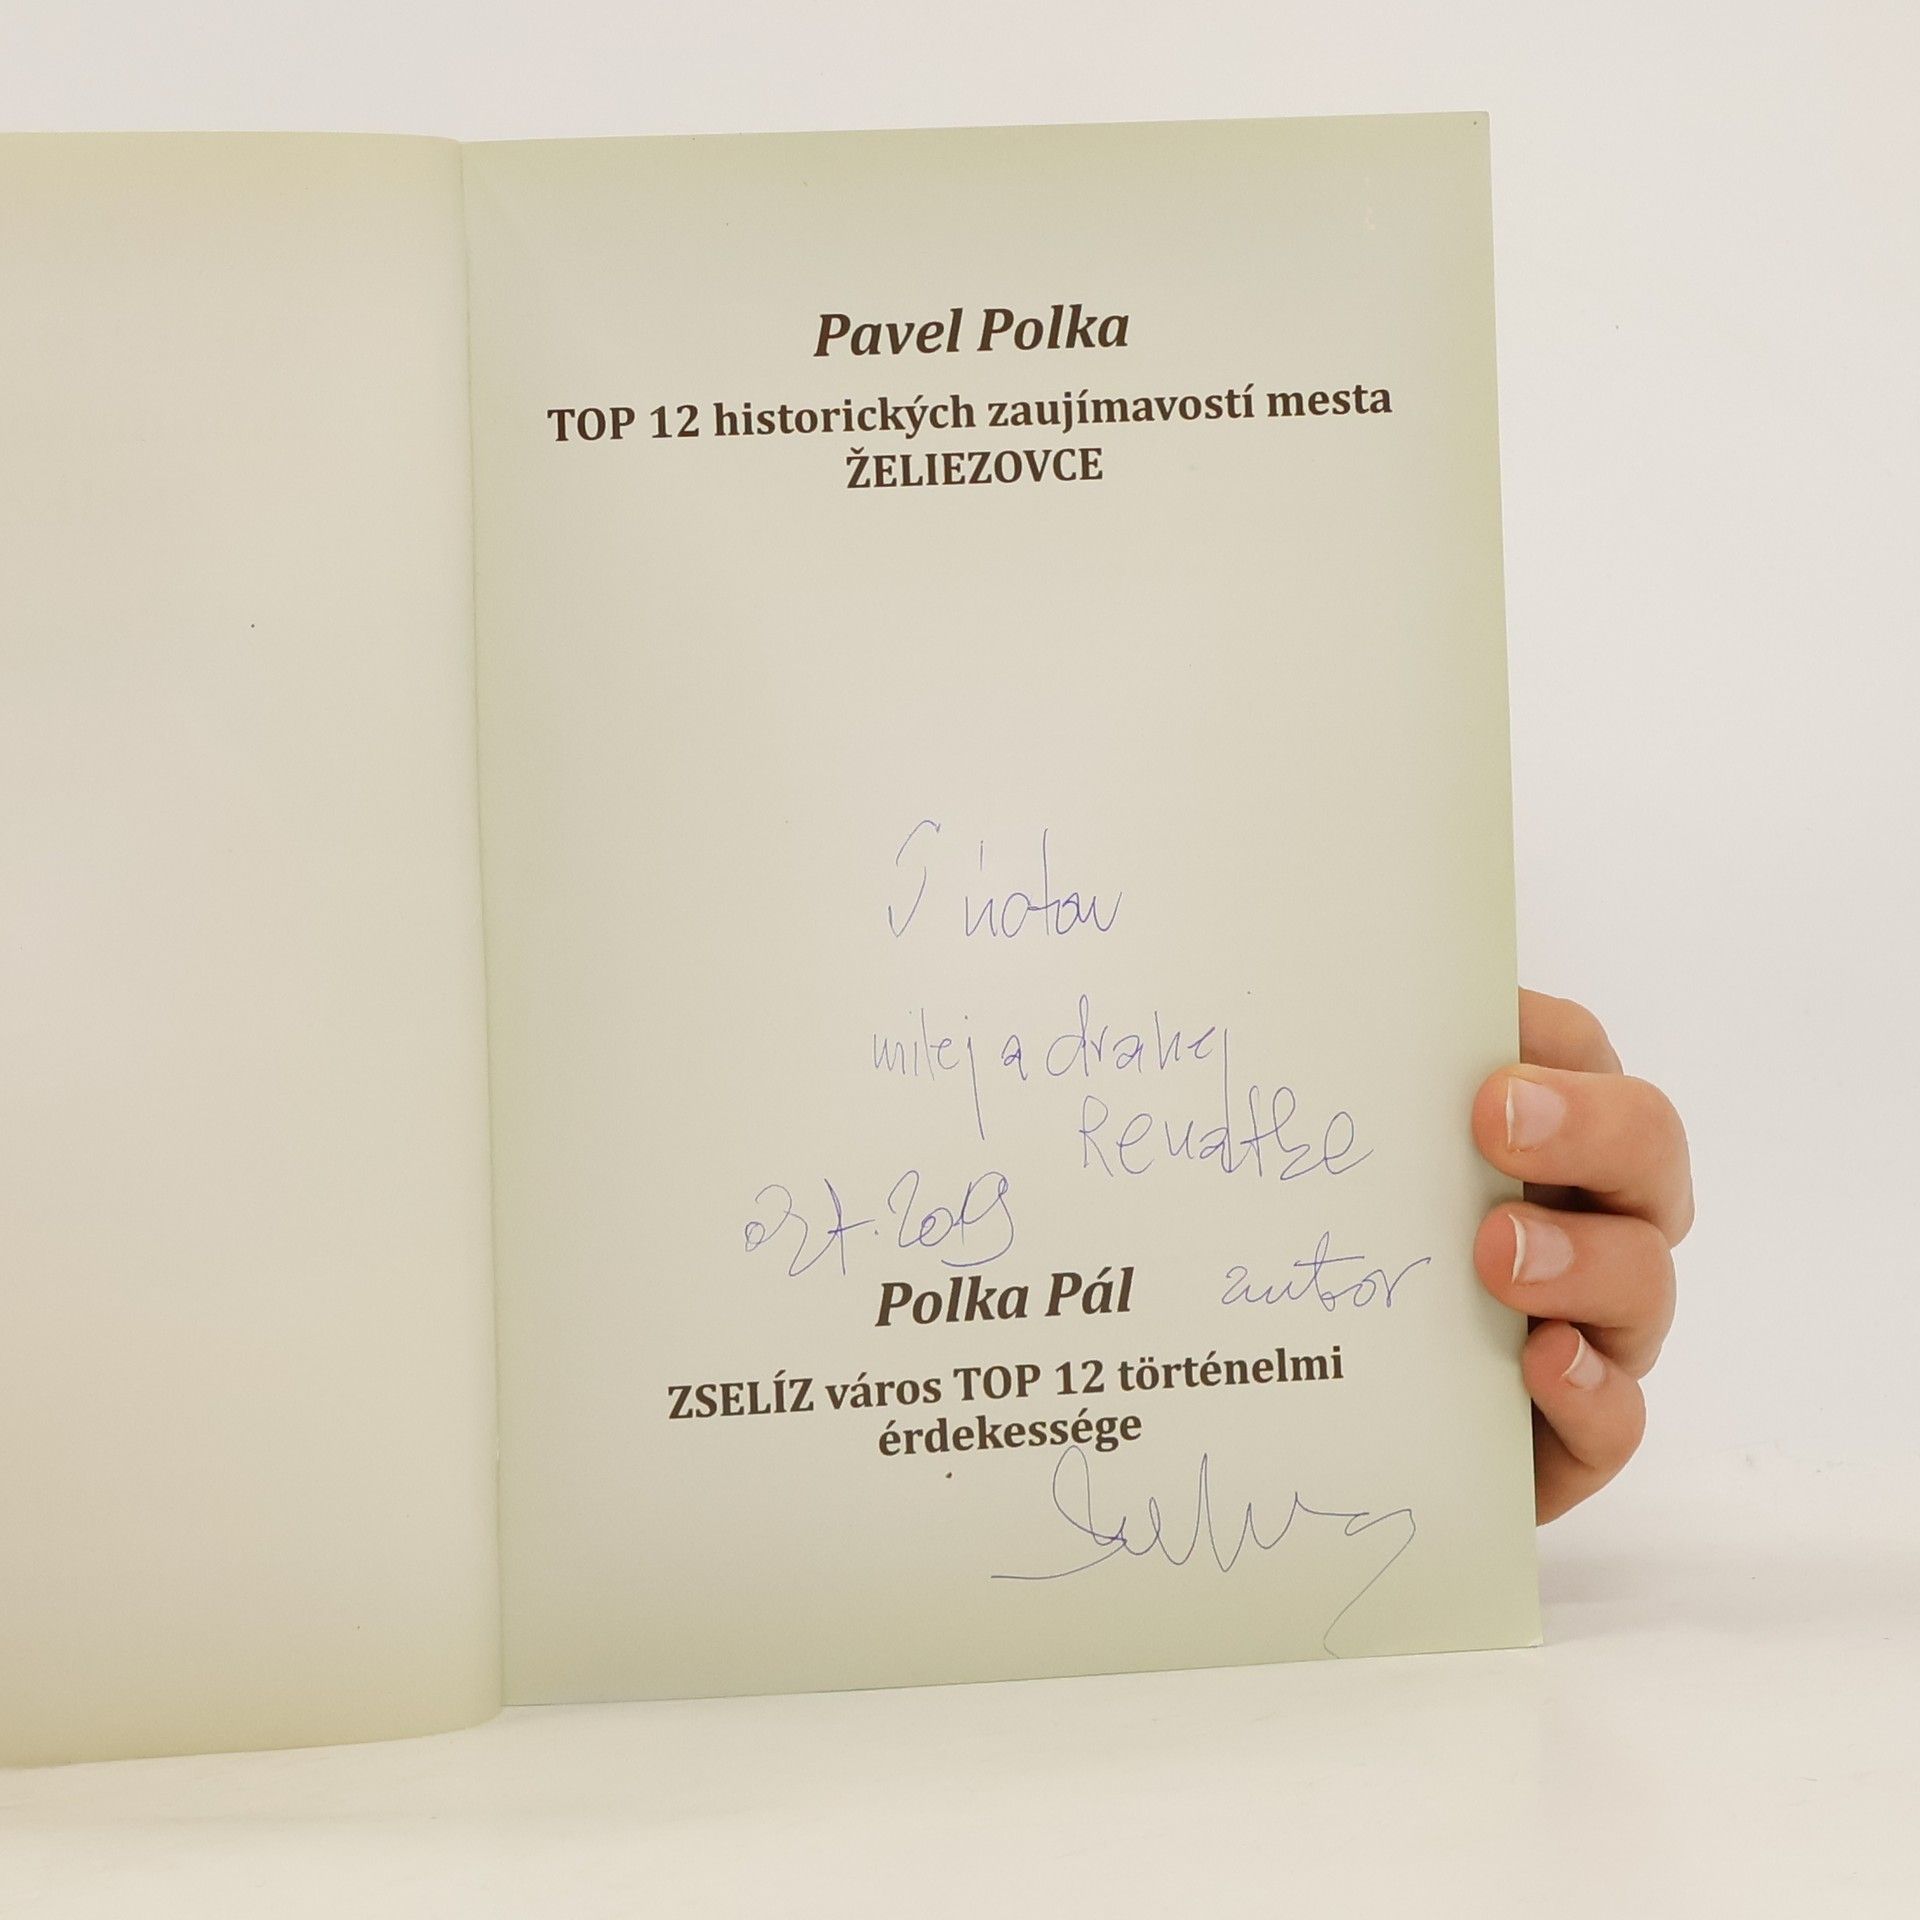 Pavel Polka
TOP 12 historických zaujímavostí mesta
ŽELIEZOVCE
S úctou
milej a drahej
Renatke
2019
Polka Pál
autor
ZSELÍZ város TOP 12 történelmi
érdekessége